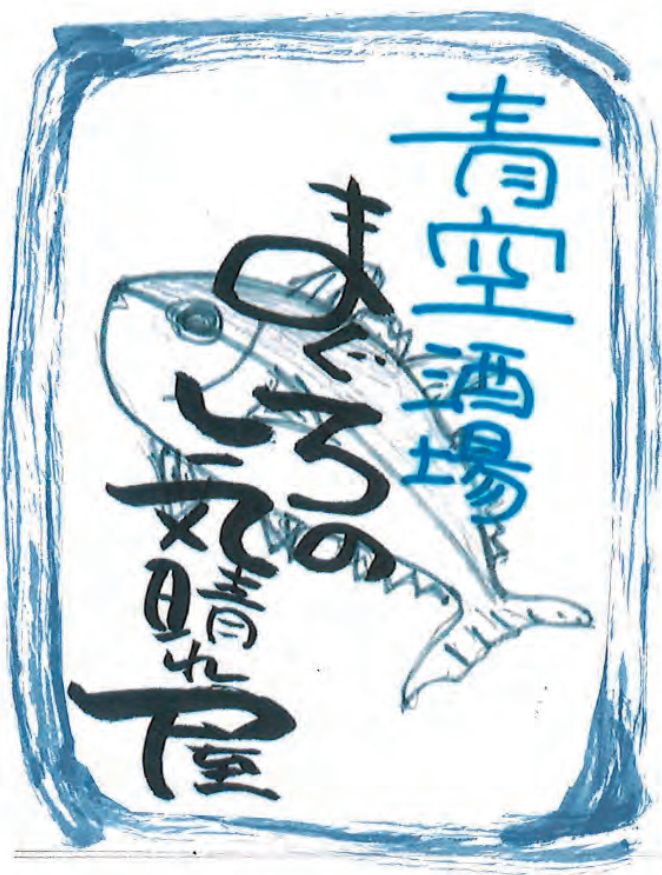 青空酒場
まぐろの
気晴れ屋